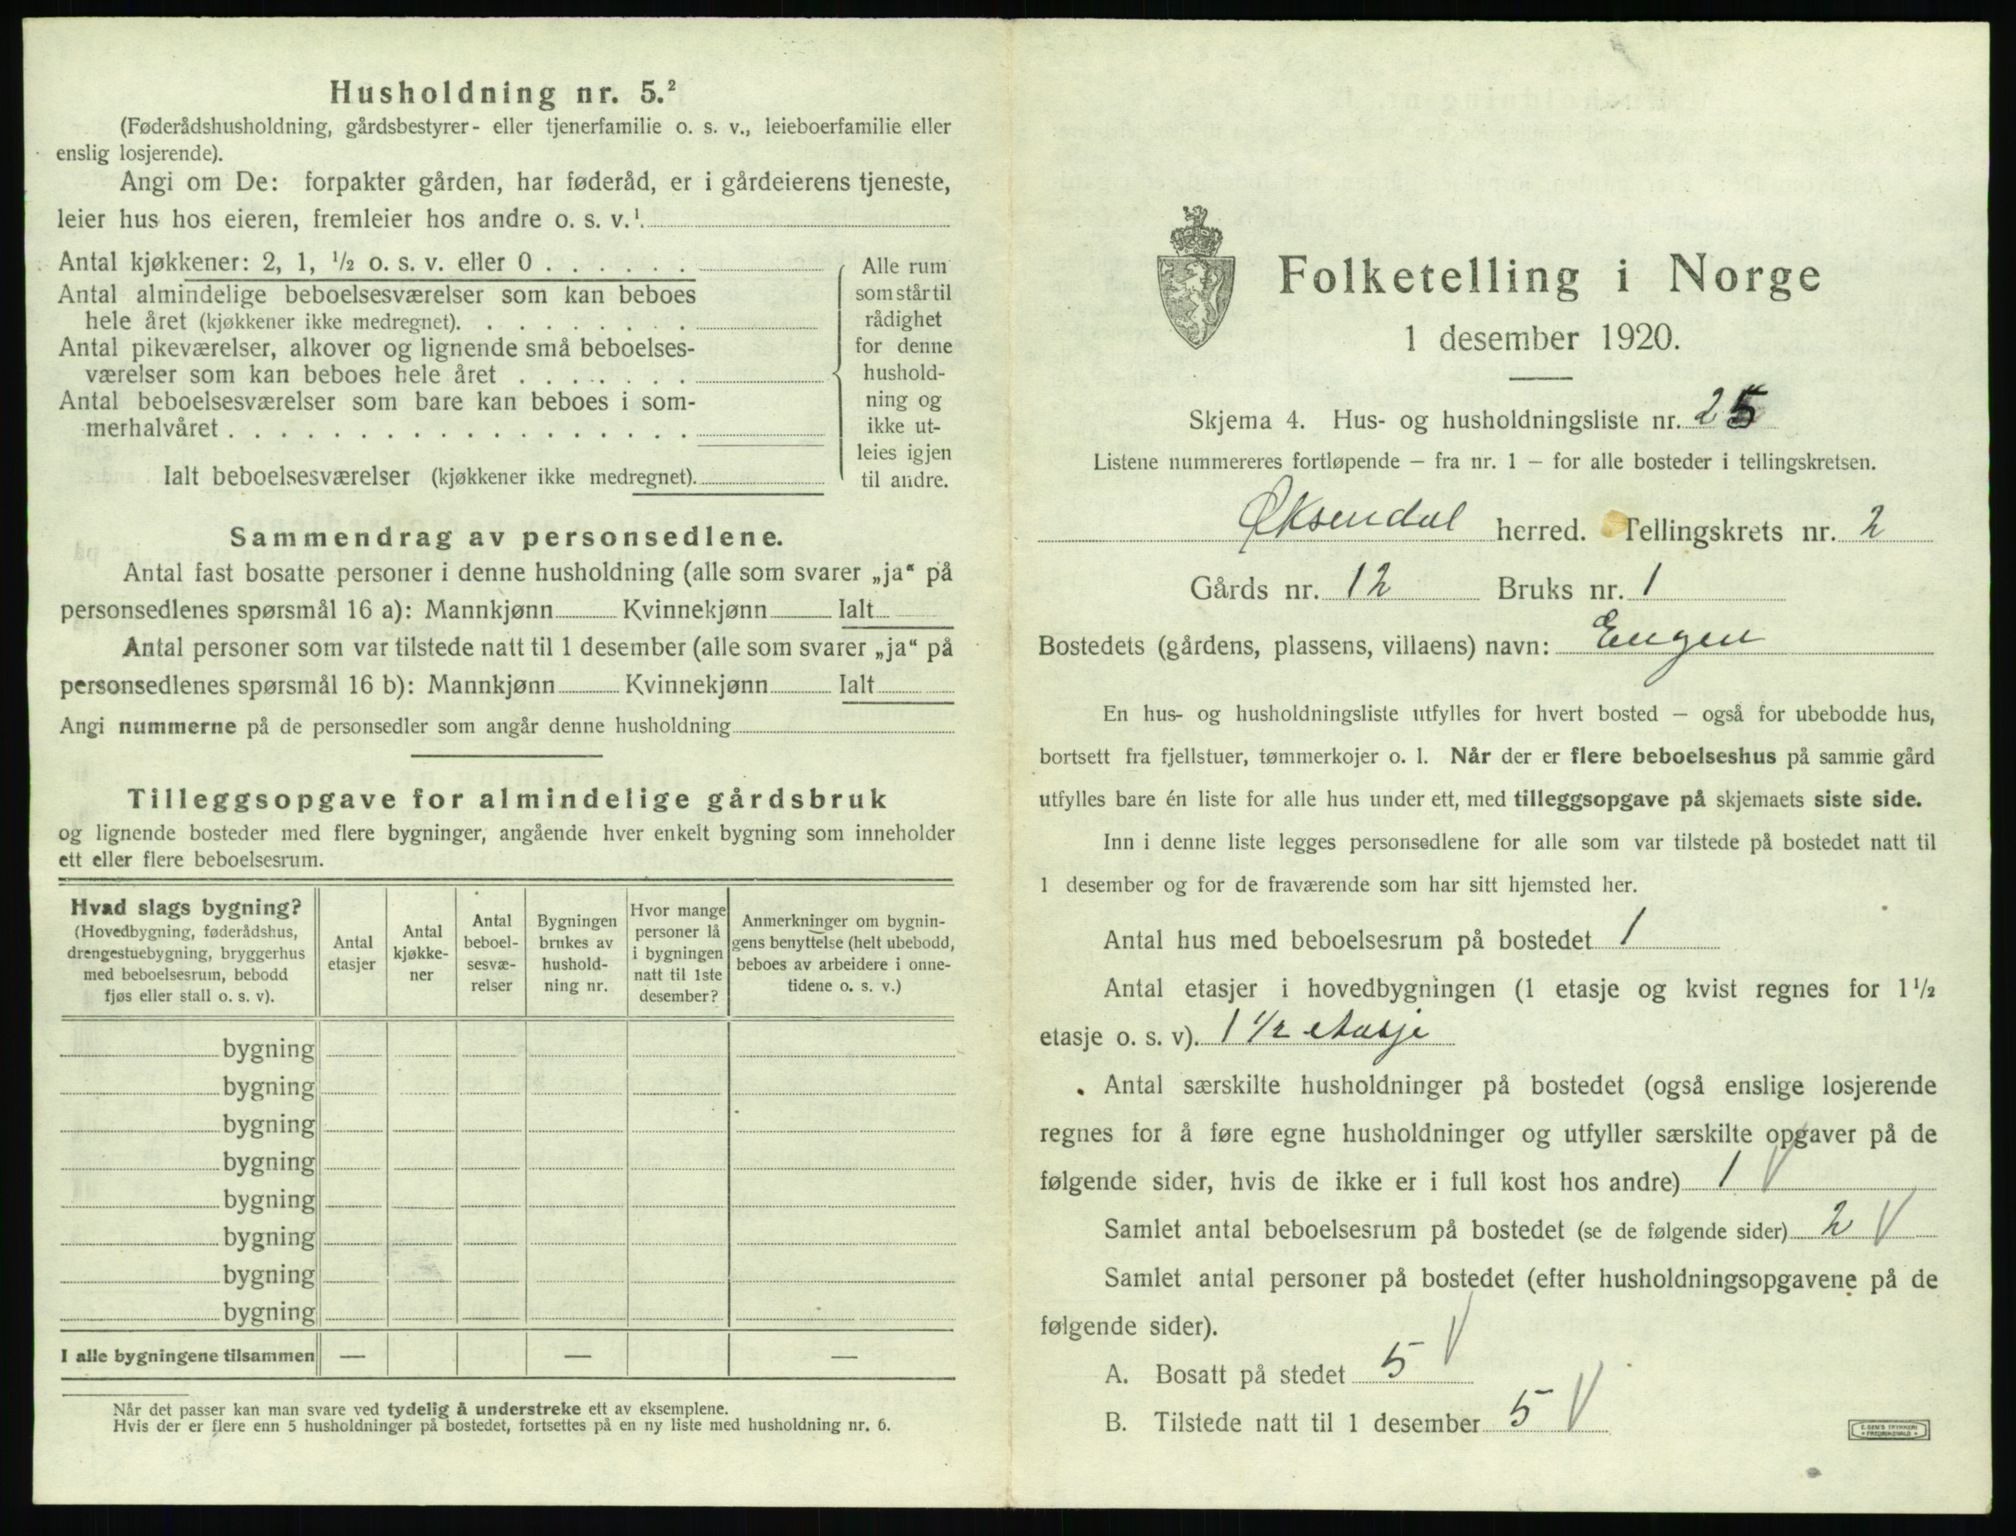 Husholdning nr. 5.²
(Føderådshusholdning, gårdsbestyrer- eller tjenerfamilie o. s. v., leieboerfamilie eller
enslig losjerende).
Angi om De: forpakter gården, har føderåd, er i gårdeierens tjeneste,
leier hus hos eieren, fremleier hos andre o. s. v.¹
Antal kjøkkener: 2, 1, ½ o. s. v. eller 0 . . . . . .
Antal almindelige beboelsesværelser som kan beboes
hele året (kjøkkener ikke medregnet). . . . . . . . .
Antal pikeværelser, alkover og lignende små beboelses-
værelser som kan beboes hele året . . . . . . .
Antal beboelsesværelser som bare kan beboes i som-
merhalvåret . . . . . . . . . . . . . . . . . .
Ialt beboelsesværelser (kjøkkener ikke medregnet).
Alle rum
som står til
rådighet
for denne
hushold-
ning og
ikke ut-
leies igjen
til andre.
Sammendrag av personsedlene.
Antal fast bosatte personer i denne husholdning (alle som svarer „ja“ på
personsedlenes spørsmål 16 a): Mannkjønn Kvinnekjønn Ialt
Antal personer som var tilstede natt til 1 desember (alle som svarer „ja“ på
personsedlenes spørsmål 16 b): Mannkjønn Kvinnekjønn Ialt
Angi nummerne på de personsedler som angår denne husholdning
Tilleggsopgave for almindelige gårdsbruk
og lignende bosteder med flere bygninger, angående hver enkelt bygning som inneholder
ett eller flere beboelsesrum.
Hvad slags bygning?
(Hovedbygning, føderådshus,
drengestuebygning, bryggerhus
med beboelsesrum, bebodd
fjøs eller stall o. s. v).
Antal
etasjer
Antal
kjøkke-
ner
Antal
beboel-
sesvæ-
relser
Bygningen
brukes av
hushold-
ning nr.
Hvor mange
personer lå
i bygningen
natt til 1ste
desember?
Anmerkninger om bygnin-
gens benyttelse (helt ubebodd,
beboes av arbeidere i onne-
tidene o. s. v.)
bygning
bygning
bygning
bygning
bygning
bygning
bygning
bygning
I alle bygningene tilsammen — — —
Når det passer kan man svare ved tydelig å understreke ett av eksemplene.
Hvis der er flere enn 5 husholdninger på bostedet, fortsettes på en ny liste med husholdning nr. 6.
Folketelling i Norge
1 desember 1920.
Skjema 4. Hus- og husholdningsliste nr. 25
Listene nummereres fortløpende – fra nr. 1 – for alle bosteder i tellingskretsen.
Øksendal herred. Tellingskrets nr. 2
Gårds nr. 12 Bruks nr. 1
Bostedets (gårdens, plassens, villaens) navn: Engen
En hus- og husholdningsliste utfylles for hvert bosted – også for ubebodde hus,
bortsett fra fjellstuer, tømmerkojer o. l. Når der er flere beboelseshus på samme gård
utfylles bare én liste for alle hus under ett, med tilleggsopgave på skjemaets siste side.
Inn i denne liste legges personsedlene for alle som var tilstede på bostedet natt til
1 desember og for de fraværende som har sitt hjemsted her.
Antal hus med beboelsesrum på bostedet 1
Antal etasjer i hovedbygningen (1 etasje og kvist regnes for 1½
etasje o. s. v). 1 ½ etasje
Antal særskilte husholdninger på bostedet (også enslige losjerende
regnes for å føre egne husholdninger og utfyller særskilte opgaver på de
følgende sider, hvis de ikke er i full kost hos andre) 1 V
Samlet antal beboelsesrum på bostedet (se de følgende sider) 2 V
Samlet antal personer på bostedet (efter husholdningsopgavene på de
følgende sider).
A. Bosatt på stedet 5 V
B. Tilstede natt til 1 desember 5 V